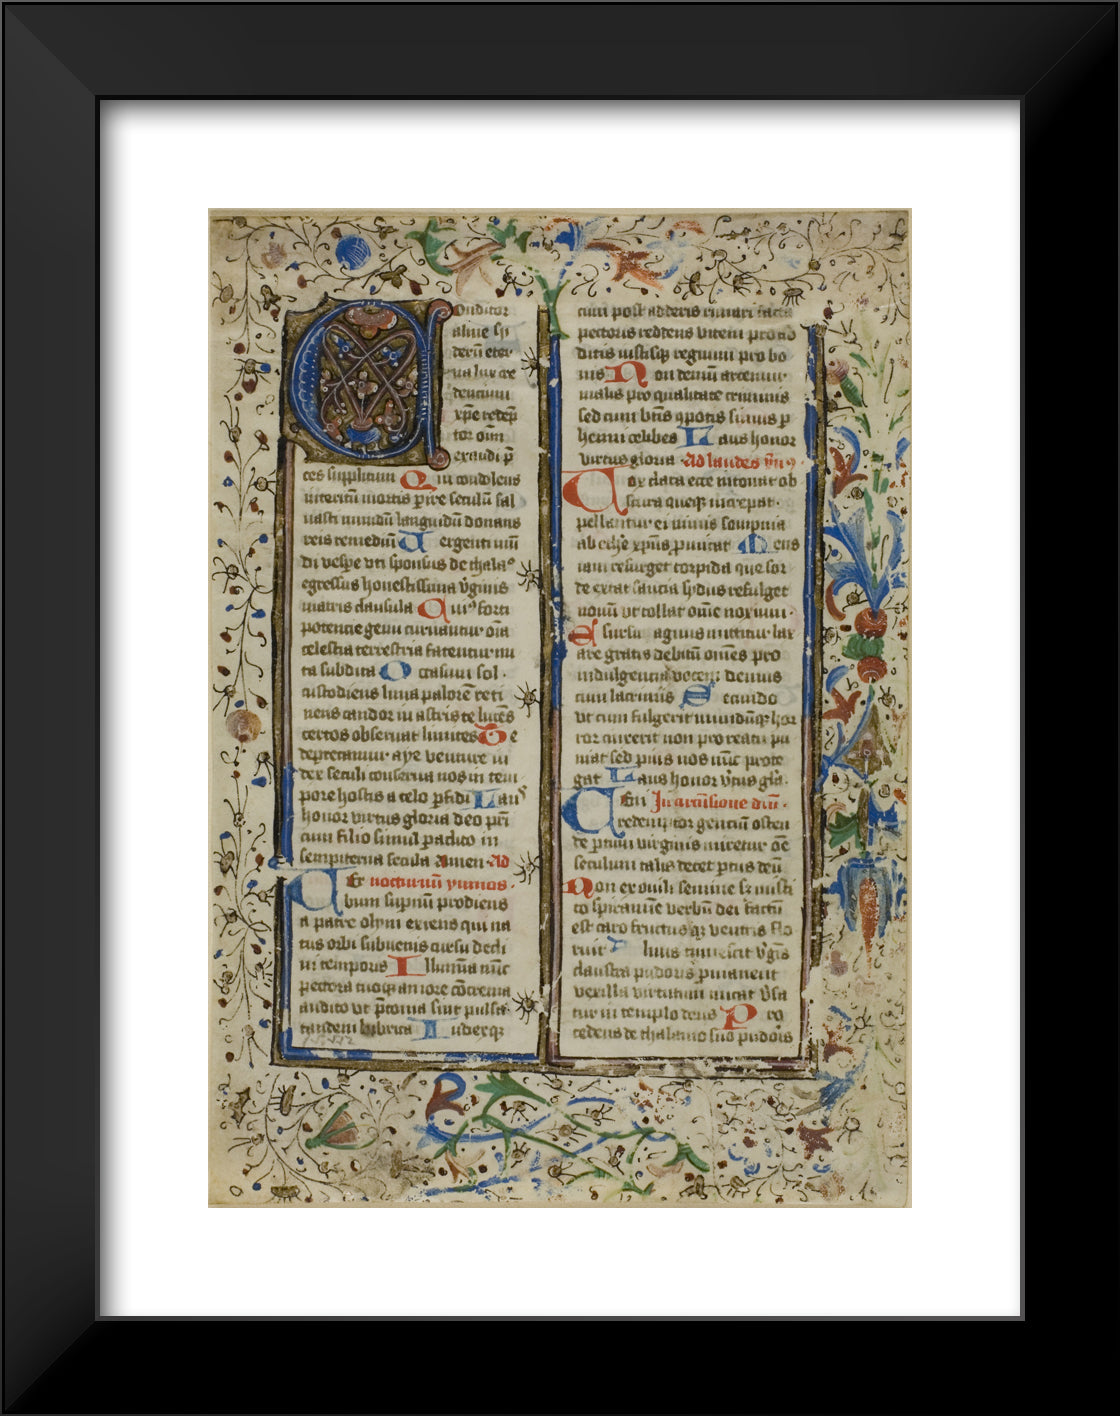 Onditor
alme sy
derū eter
na lux cre
dentium
xp̄e redēp
tor oim̄
exaudi p̄
ces supplicum Qui condolens
interitu mortis p̄ire seculū sal
uasti mundū languidū donans
reis remediū Vergenti mū
di vesp̄e vti sponsus de thalaº
egressus honestissima v̄ginis
matris clausula Cuiꝰ forti
potencie genu curuantur oīa
celestia terrestria fatentur nu
tu subdita Occasum sol
custodiens luna palorē reti
nens candor in astris relucēs
certos obseruat limites Te
deprecamur aye venture iu
dex seculi conserua nos in tem
pore hostis a telo pfidi Laus
honor virtus gloria deo pr̄i
cum filio simul paclito in
sempiterna secula Amen Ad
Er nocturnū ymnos.
bum supnū prodiens
a patre olym exiens qui na
tus orbi subuenis cursu decli
ui temporis Illumīa nūc
pectora tuoqꝫ amore cōcrema
audito vt pconia sint pulsa
tandem lubrica Iudexqꝫ
cum post aderis rimari facta
pectoris reddens vicem pro abd
ditis iustisqꝫ regnum pro bo
nis Non demū arcemur
malis pro qualitate criminis
sed cum btīs cōpotes simus p
henni celibes Laus honor
virtus gloria Ad laudes ym̄ꝰ
ox clara ecce intonat ob
scura queqꝫ increpat
pellantur eminus sompnia
ab ethe xp̄us pmicat Mens
iam resurget torpida que sor
de extat saucia sydus refulget
nouū vt tollat om̄e noxium
E sursū agnus mittitur lax
are gratis debitū om̄es pro
indulgencia vocem demus
cum lacrimis Secundo
vt cum fulgerit mundūqꝫ hor
ror cinxerit non pro reatu pu
niat sed pius nos tūc prote
gat Laus honor v̄tus gl̄a.
Eni In
redemptor gencium osten
de partum virginis miretur oē
seculum talis decet ptus deū
Non ex virili semine sꝫ misti
co spiramie verbū dei factū
est caro fructusqꝫ ventris flo
ruit Aluus tumescit v̄gīs
claustra pudoris pmanent
vexilla virtutum micat v̄sa
tur in templo deus Pro
cedens de thalamo suo pudoris